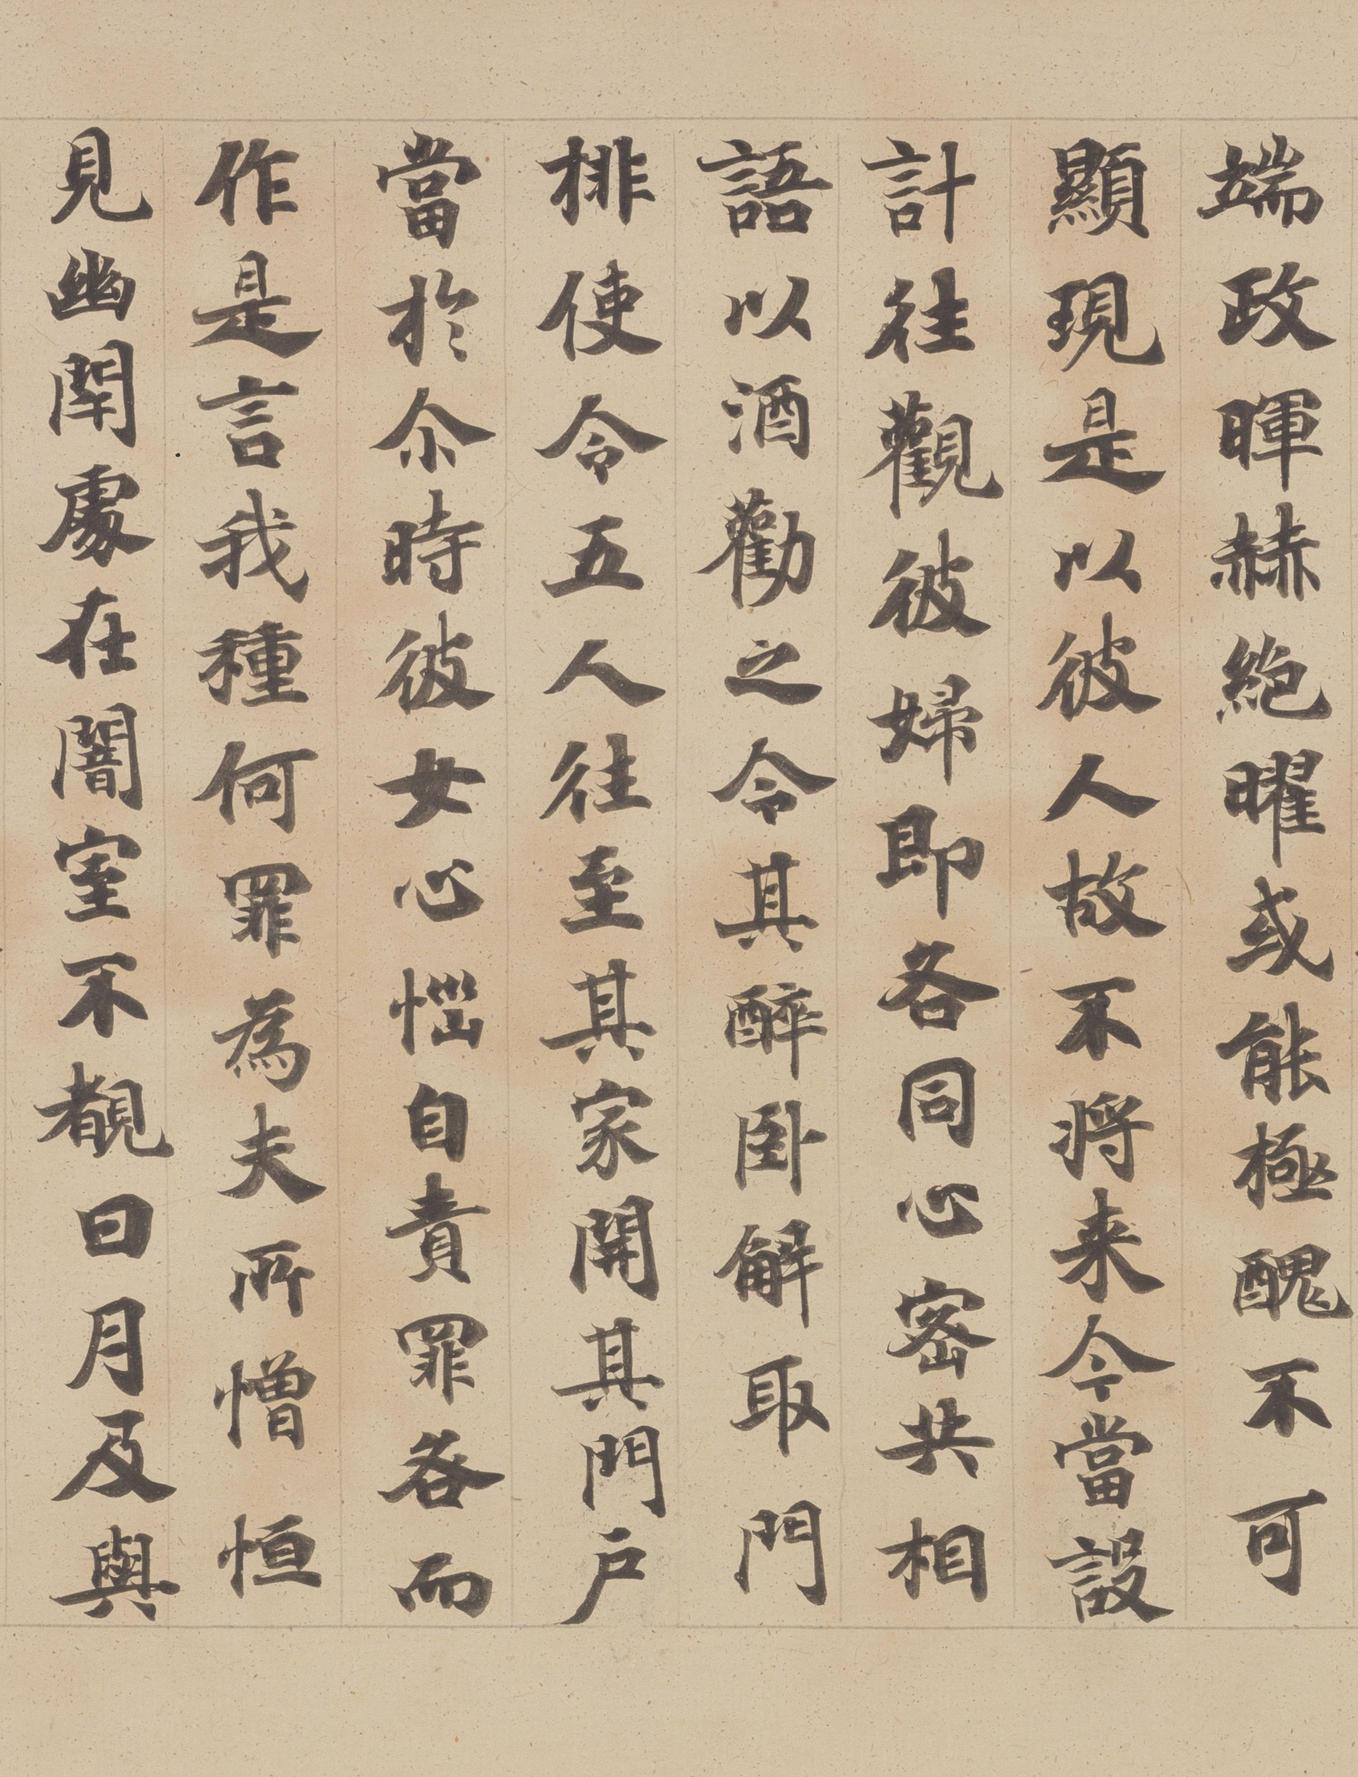 端政暉赫絶曜或能極醜不可
顯現是以彼人故不将来今當設
計往觀彼婦即各同心密共相
語以酒勸之令其醉卧解取門
排使令五人往至其家開其門戶
當於尒時彼女心惱自責罪咎而
作是言我種何罪為夫所憎恒
見幽閇處在闇室不覩日月及與